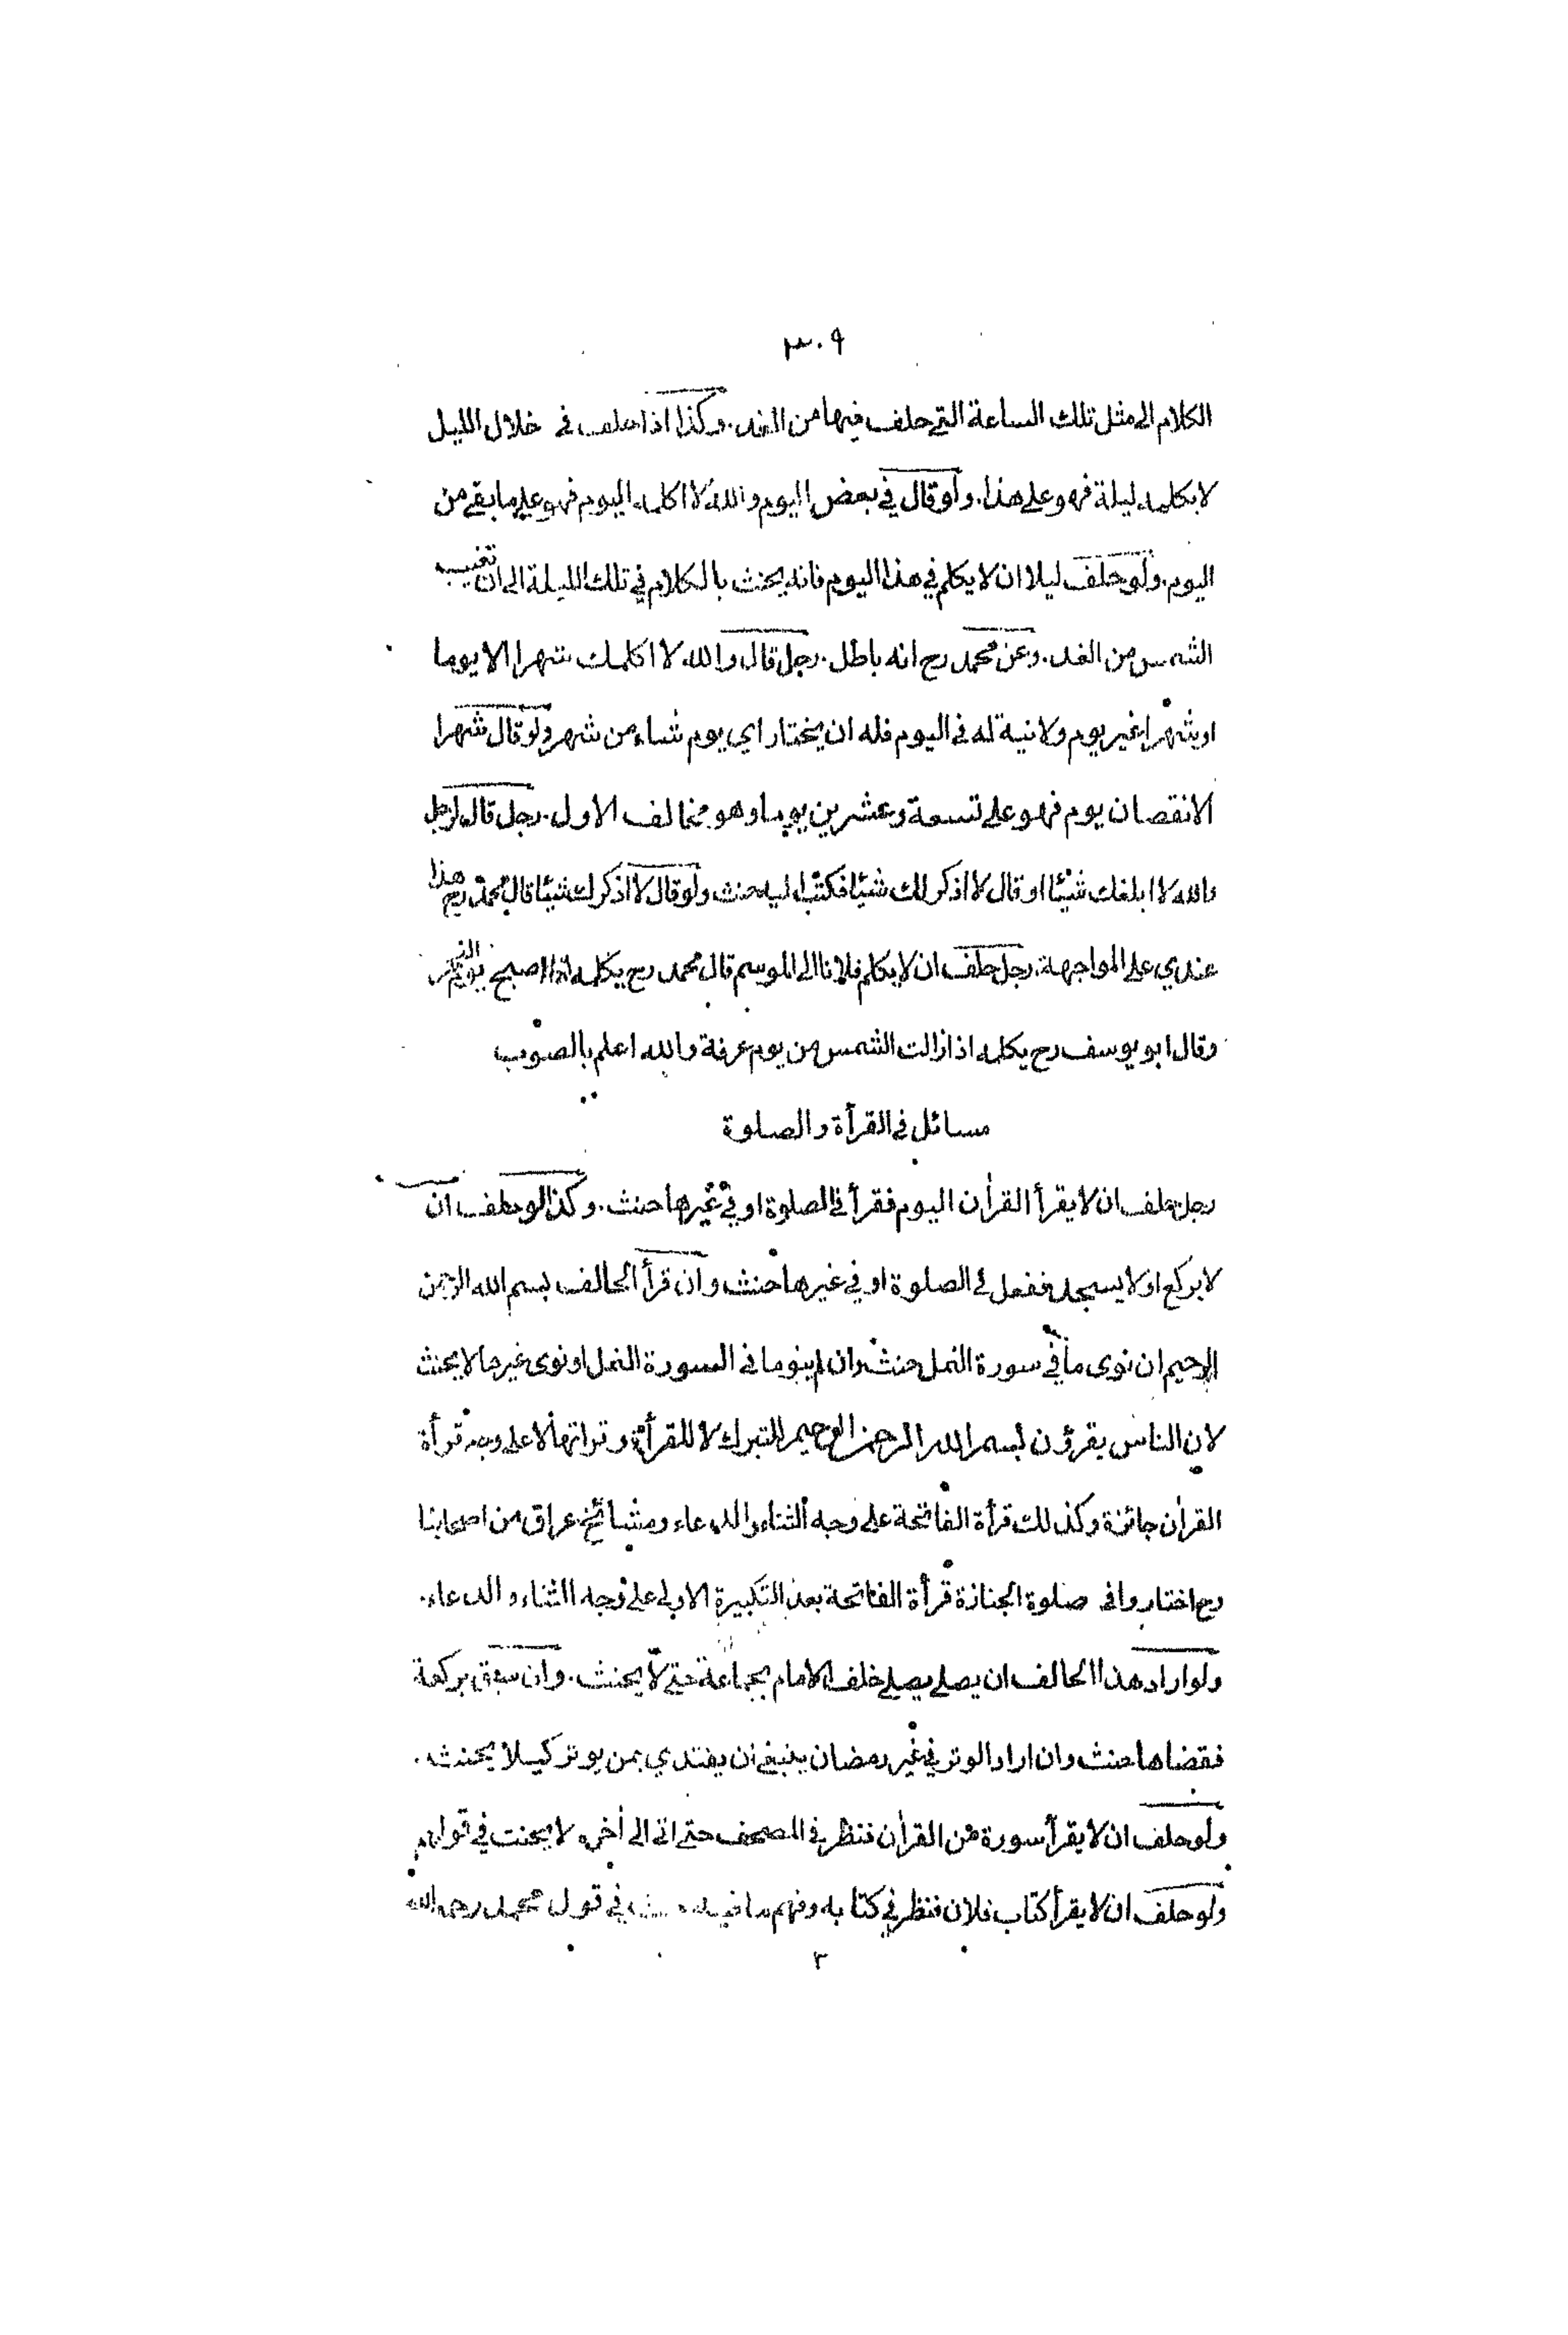 ٣٠٩
الكلام الى مثل تلك الساعة التي حلف فيها من الغد. وكذا اذا حلف في خلال الليل
لا يكلمه ليلة فهو على هذا. ولو قال في بعض اليوم والله لا اكلمه اليوم فهو على ما بقي من
اليوم. ولو حلف ليلا ان لا يكلم في هذا اليوم فانه يحنث بالكلام في تلك الليلة الى ان تغيب
الشمس من الغد. وعن محمد رح انه باطل. رجل قال والله لا اكلمك شهرا الا يوما
او شهرا غير يوم ولا نية له في اليوم فله ان يختار اي يوم شاء من شهر ولو قال شهرا
الا نقصان يوم فهو على تسعة وعشرين يوما وهو مخالف الاول. رجل قال لرجل
والله لا ابلغك شيئا او قال لا اذكر لك شيئا فكتب اليه حنث ولو قال لا اذكرك شيئا قال محمد رح هذا
عندي على المواجهة. رجل حلف ان لا يكلم فلانا الى الموسم قال محمد رح يكلمه اذا اصبح يوم النحر
وقال ابو يوسف رح يكلمه اذا زالت الشمس من يوم عرفة والله اعلم بالصوب
مسائل في القرأة والصلوة
رجل حلف ان لا يقرأ القرأن اليوم فقرأ في الصلوة او في غيرها حنث. وكذا لو حلف ان
لا يركع او لا يسجد ففعل في الصلوة او في غيرها حنث وان قرأ الحالف بسم الله الرحمن
الرحيم ان نوى ما في سورة النمل حنث وان لم ينو ما في السورة النمل او نوى غيرها لا يحنث
لان الناس يقرؤن بسم الله الرحمن الرحيم للتبرك لا للقرأة وقراتها لا على وجه قرأة
القرأن جائزة وكذلك قرأة الفاتحة على وجه الثناء والدعاء ومشائخ عراق من اصحابنا
رح اختاروا في صلوة الجنازة قرأة الفاتحة بعد التكبيرة الاولى على وجه الثناء والدعاء.
ولو اراد هذا الحالف ان يصلي يصلي خلف الامام بجماعة حتى لا يحنث. وان سبق بركعة
فقضاها حنث وان اراد الوتر في غير رمضان ينبغي ان يقتدي بمن يوتر كيلا يحنث.
ولو حلف ان لا يقرأ سورة من القرأن فنظر في المصحف حتى اتى الى أخره لا يحنث في قولهم
ولو حلف ان لا يقرأ كتاب فلان فنظر في كتابه وفهم ما فيه حنث في قول محمد رحمه الله
٣